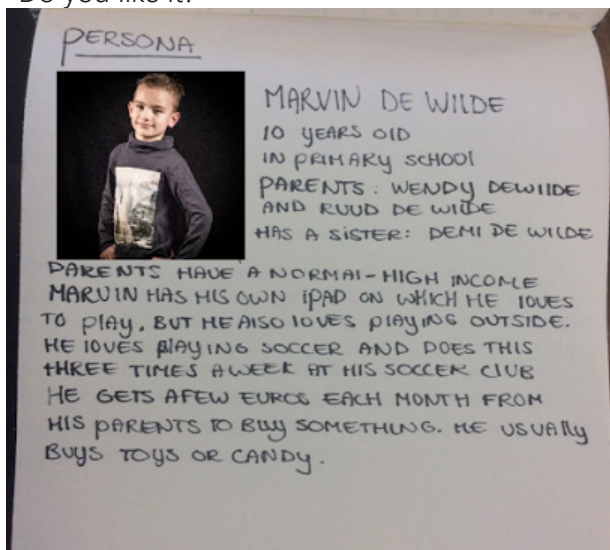 Do you like it?
PERSONA
MARVIN DE WILDE
10 YEARS OlD
IN PRIMARY SCHOOl
PARENTS: WENDY DEWIlDE
AND RUUD DE WIlDE
HAS A SISTER: DEMI DE WILDE
PARENTS HAVE A NORMAl-HIGH INCOME
MARVIN HAS HIS OWN iPAD ON WHICH HE lOVES
TO PlAY, BUT HE AlSO lOVES PlAYING OUTSIDE.
HE lOVES PlAYING SOCCER AND DOES THIS
THREE TIMES A WEEK AT HIS SOCCER ClUB
HE GETS A FEW EUROS EACH MONTH FROM
HIS PARENTS TO BUY SOMETHING. HE USUAlly
BUYS TOYS OR CANDY.